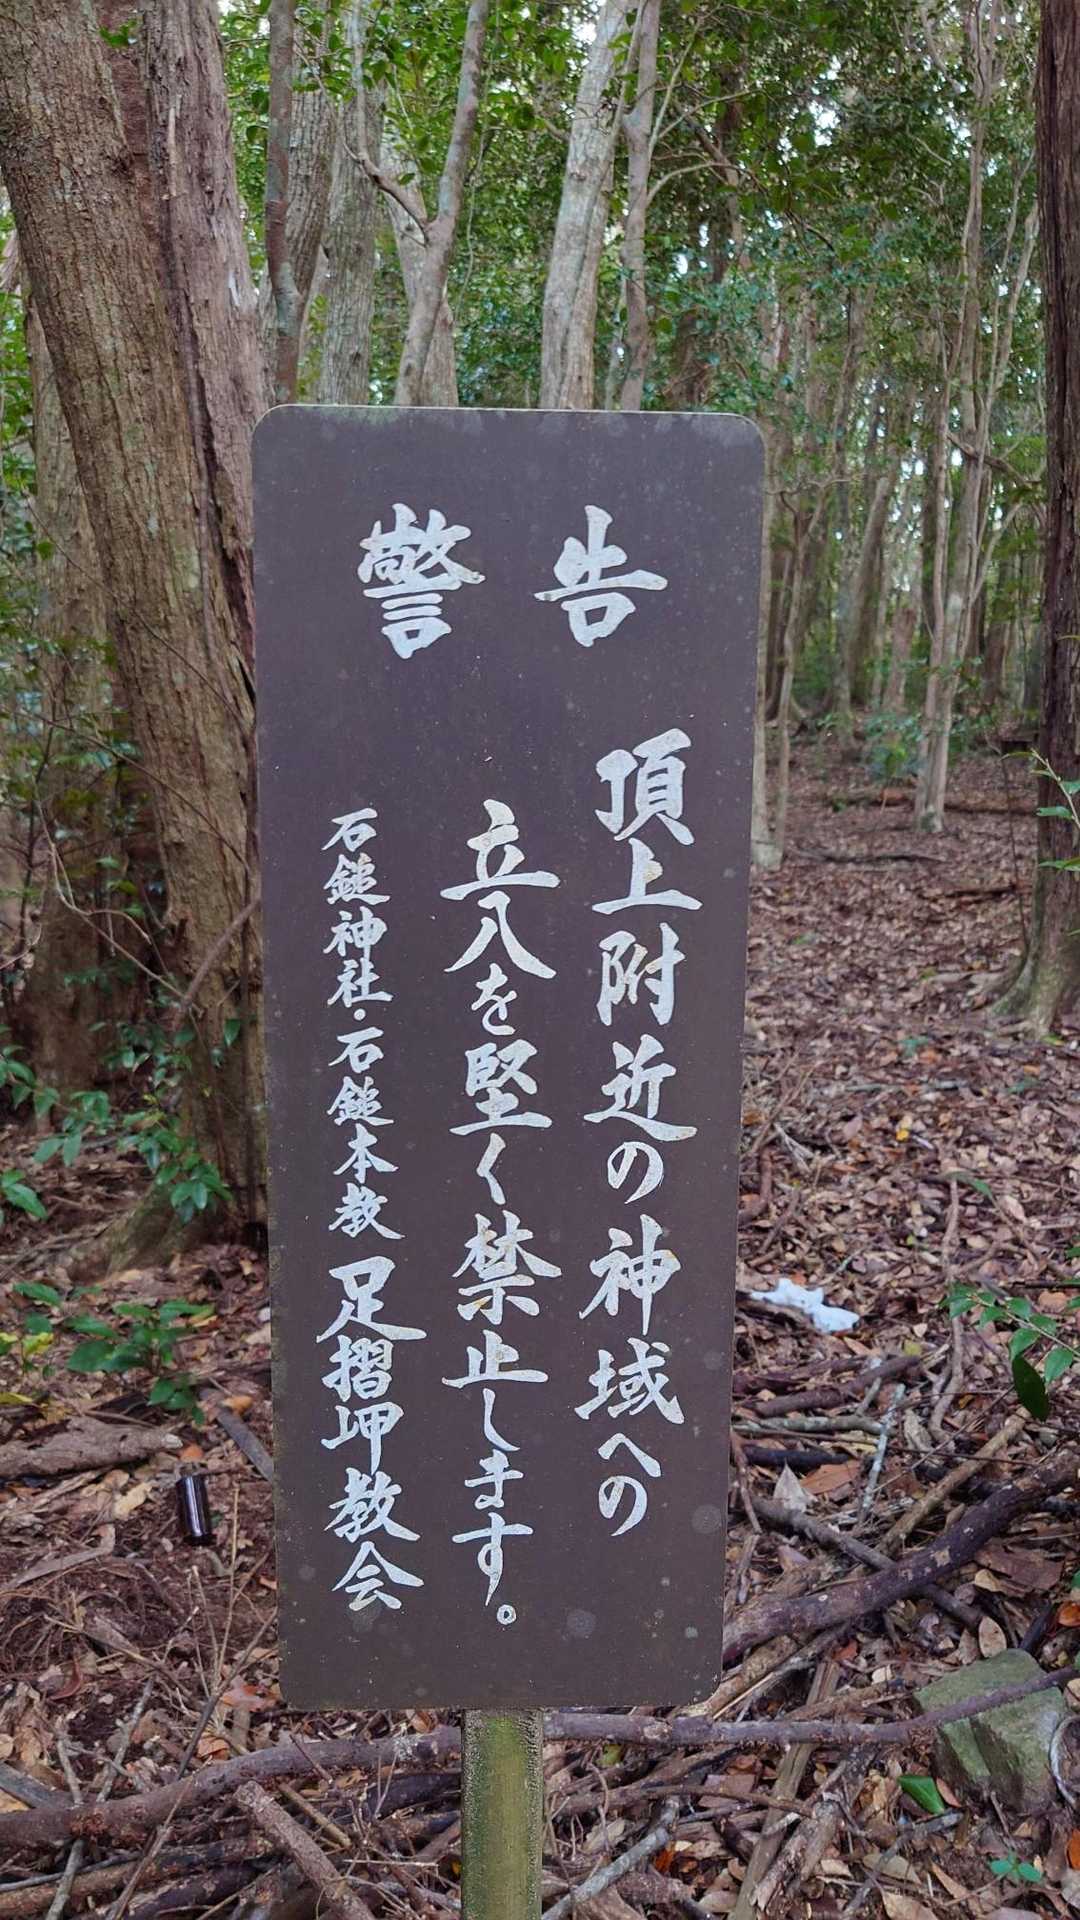 警告
頂上附近の神域への
立入を堅く禁止します。
石鎚神社・石鎚本教 足摺岬教会